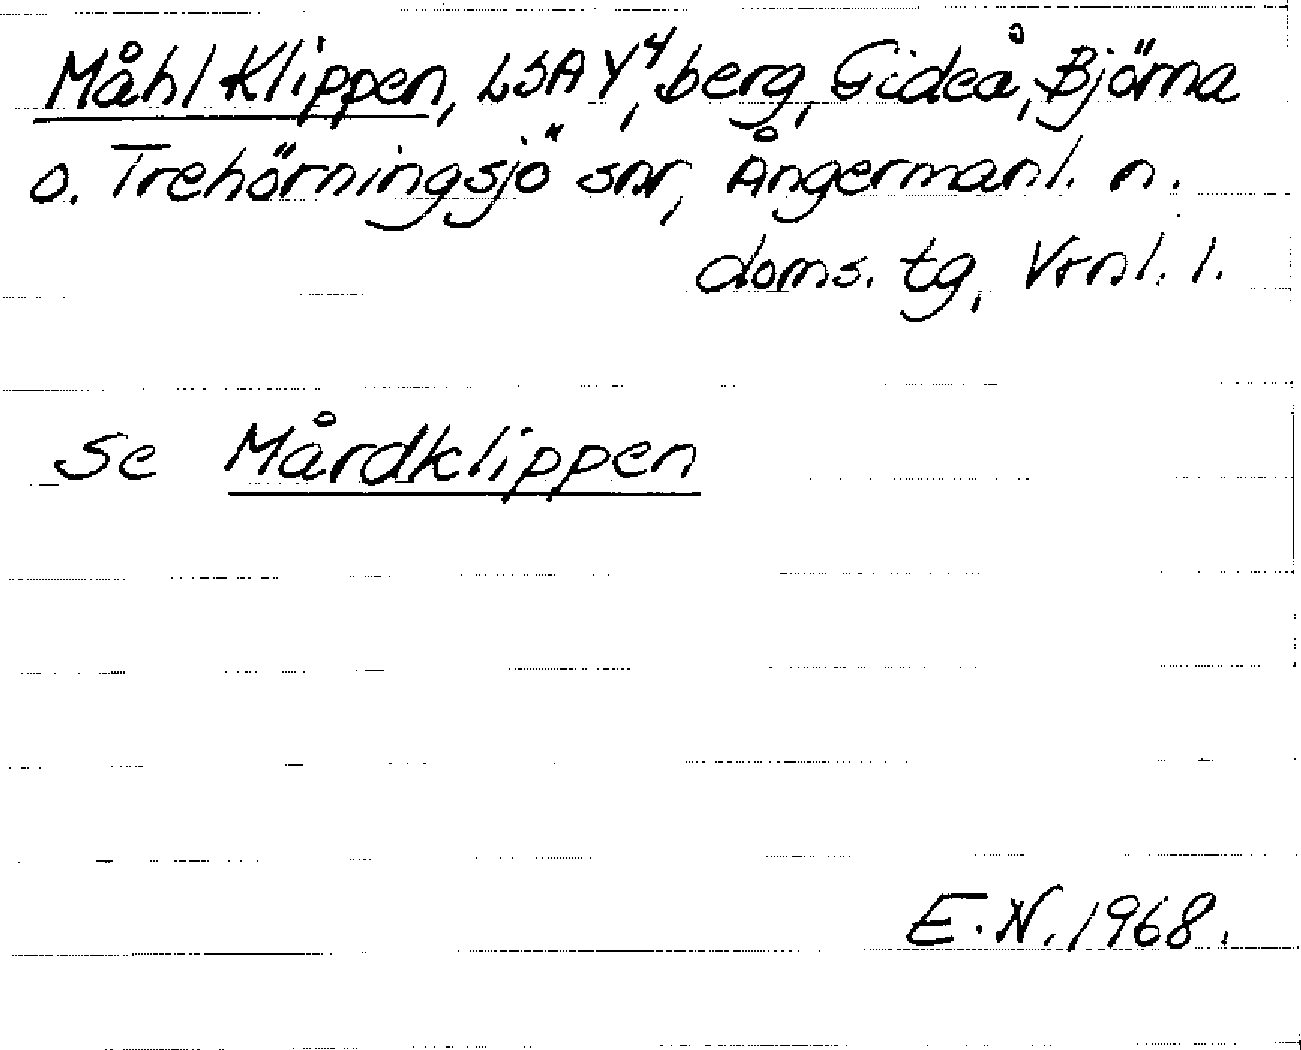 Måhl Klippen, LSA Y⁴, berg, Gideå, Björna
o. Trehörningsjö snr, Ångermanl. n.
doms. tg, Vrnl. l.
se Mårdklippen
E.N. 1968.